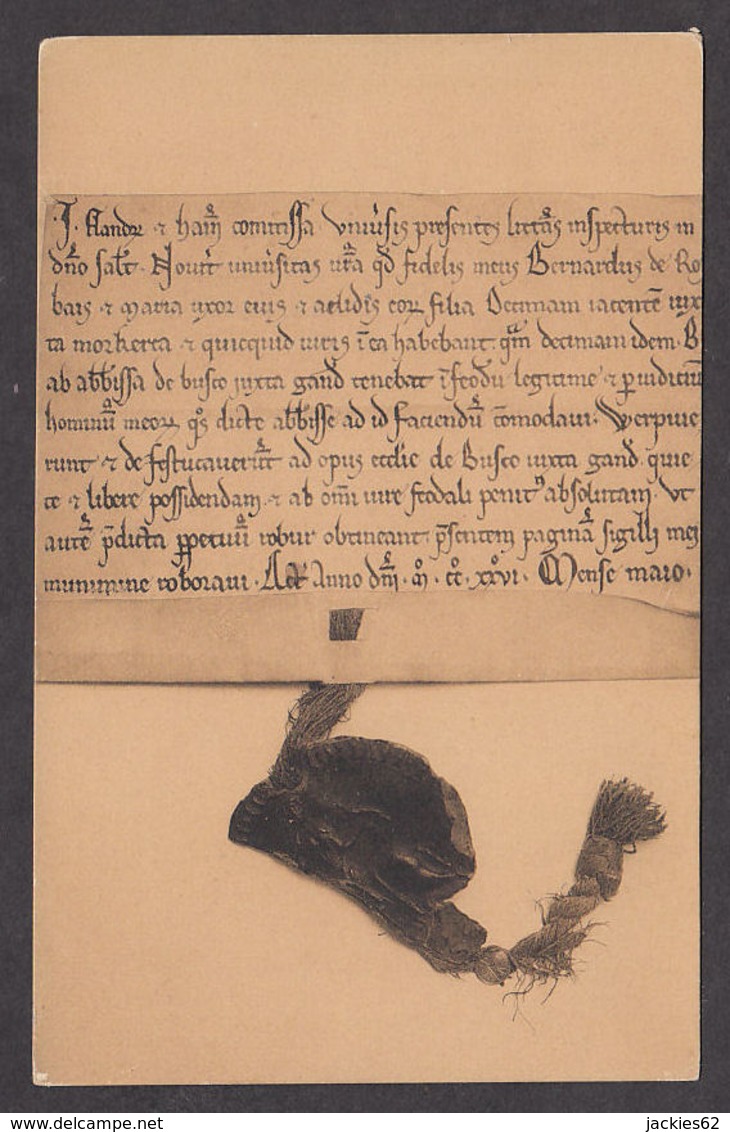 J. flandr⁊ ⁊ hain̄ comitissa vniu͛sis presentes litt͛as inspecturis in
dn̄o sal͛t. Nouit͛ uniu͛sitas ur̄a qd̄ fidelis meus Bernardus de Ro
bais ⁊ maria uxor eius ⁊ aelidis eorꝝ filia Decimam iacentē iux
ta morkerca ⁊ quicquid iuris ī ea habebant. qm̄ decimam idem. B
ab abb̄issa de busco iuxta gand̄ tenebat ī feodū legitime ⁊ ꝑ iudiciū
hominū meorꝝ q̊s dicte abb̄isse ad id faciendū cōmodaui. Werpiue
runt ⁊ de festucauerūt ad opus ecclie de Busco iuxta gand̄. quie
te ⁊ libere possidendam. ⁊ ab om̄i iure feodali penitꝰ absolutam. Vt
autē p̄dicta ꝑpetuū robur obtineant. p̄sentem paginā sigilli mei
munimine roboraui. Act̄ Anno dn̄i. m̊. cc̊. xx̊vi. Mense maio.
www.delcampe.net
jackies62